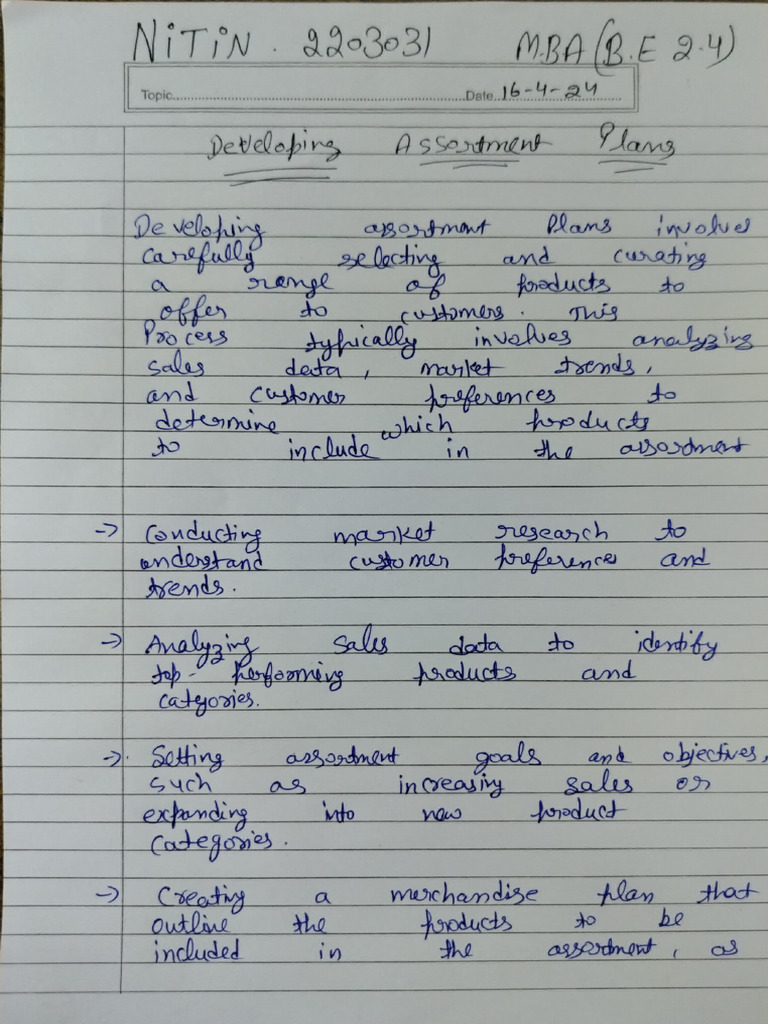 NITIN. 2203031 MBA (B.E 2.4)
Topic Date 16-4-24
Developing Assortment Plans
Developing assortment Plans involves
carefully selecting and curating
a range of products to
offer to customers. This
Process typically involves analyzing
sales data, market trends,
and customer preferences to
determine which products
to include in the assortment
→ Conducting market research to
understand customer preference and
trends.
→ Analyzing sales data to identify
top-performing products and
categories.
→ Setting assortment goals and objectives,
such as increasing sales or
expanding into new product
categories.
→ Creating a merchandise plan that
outline the products to be
included in the assortment, as